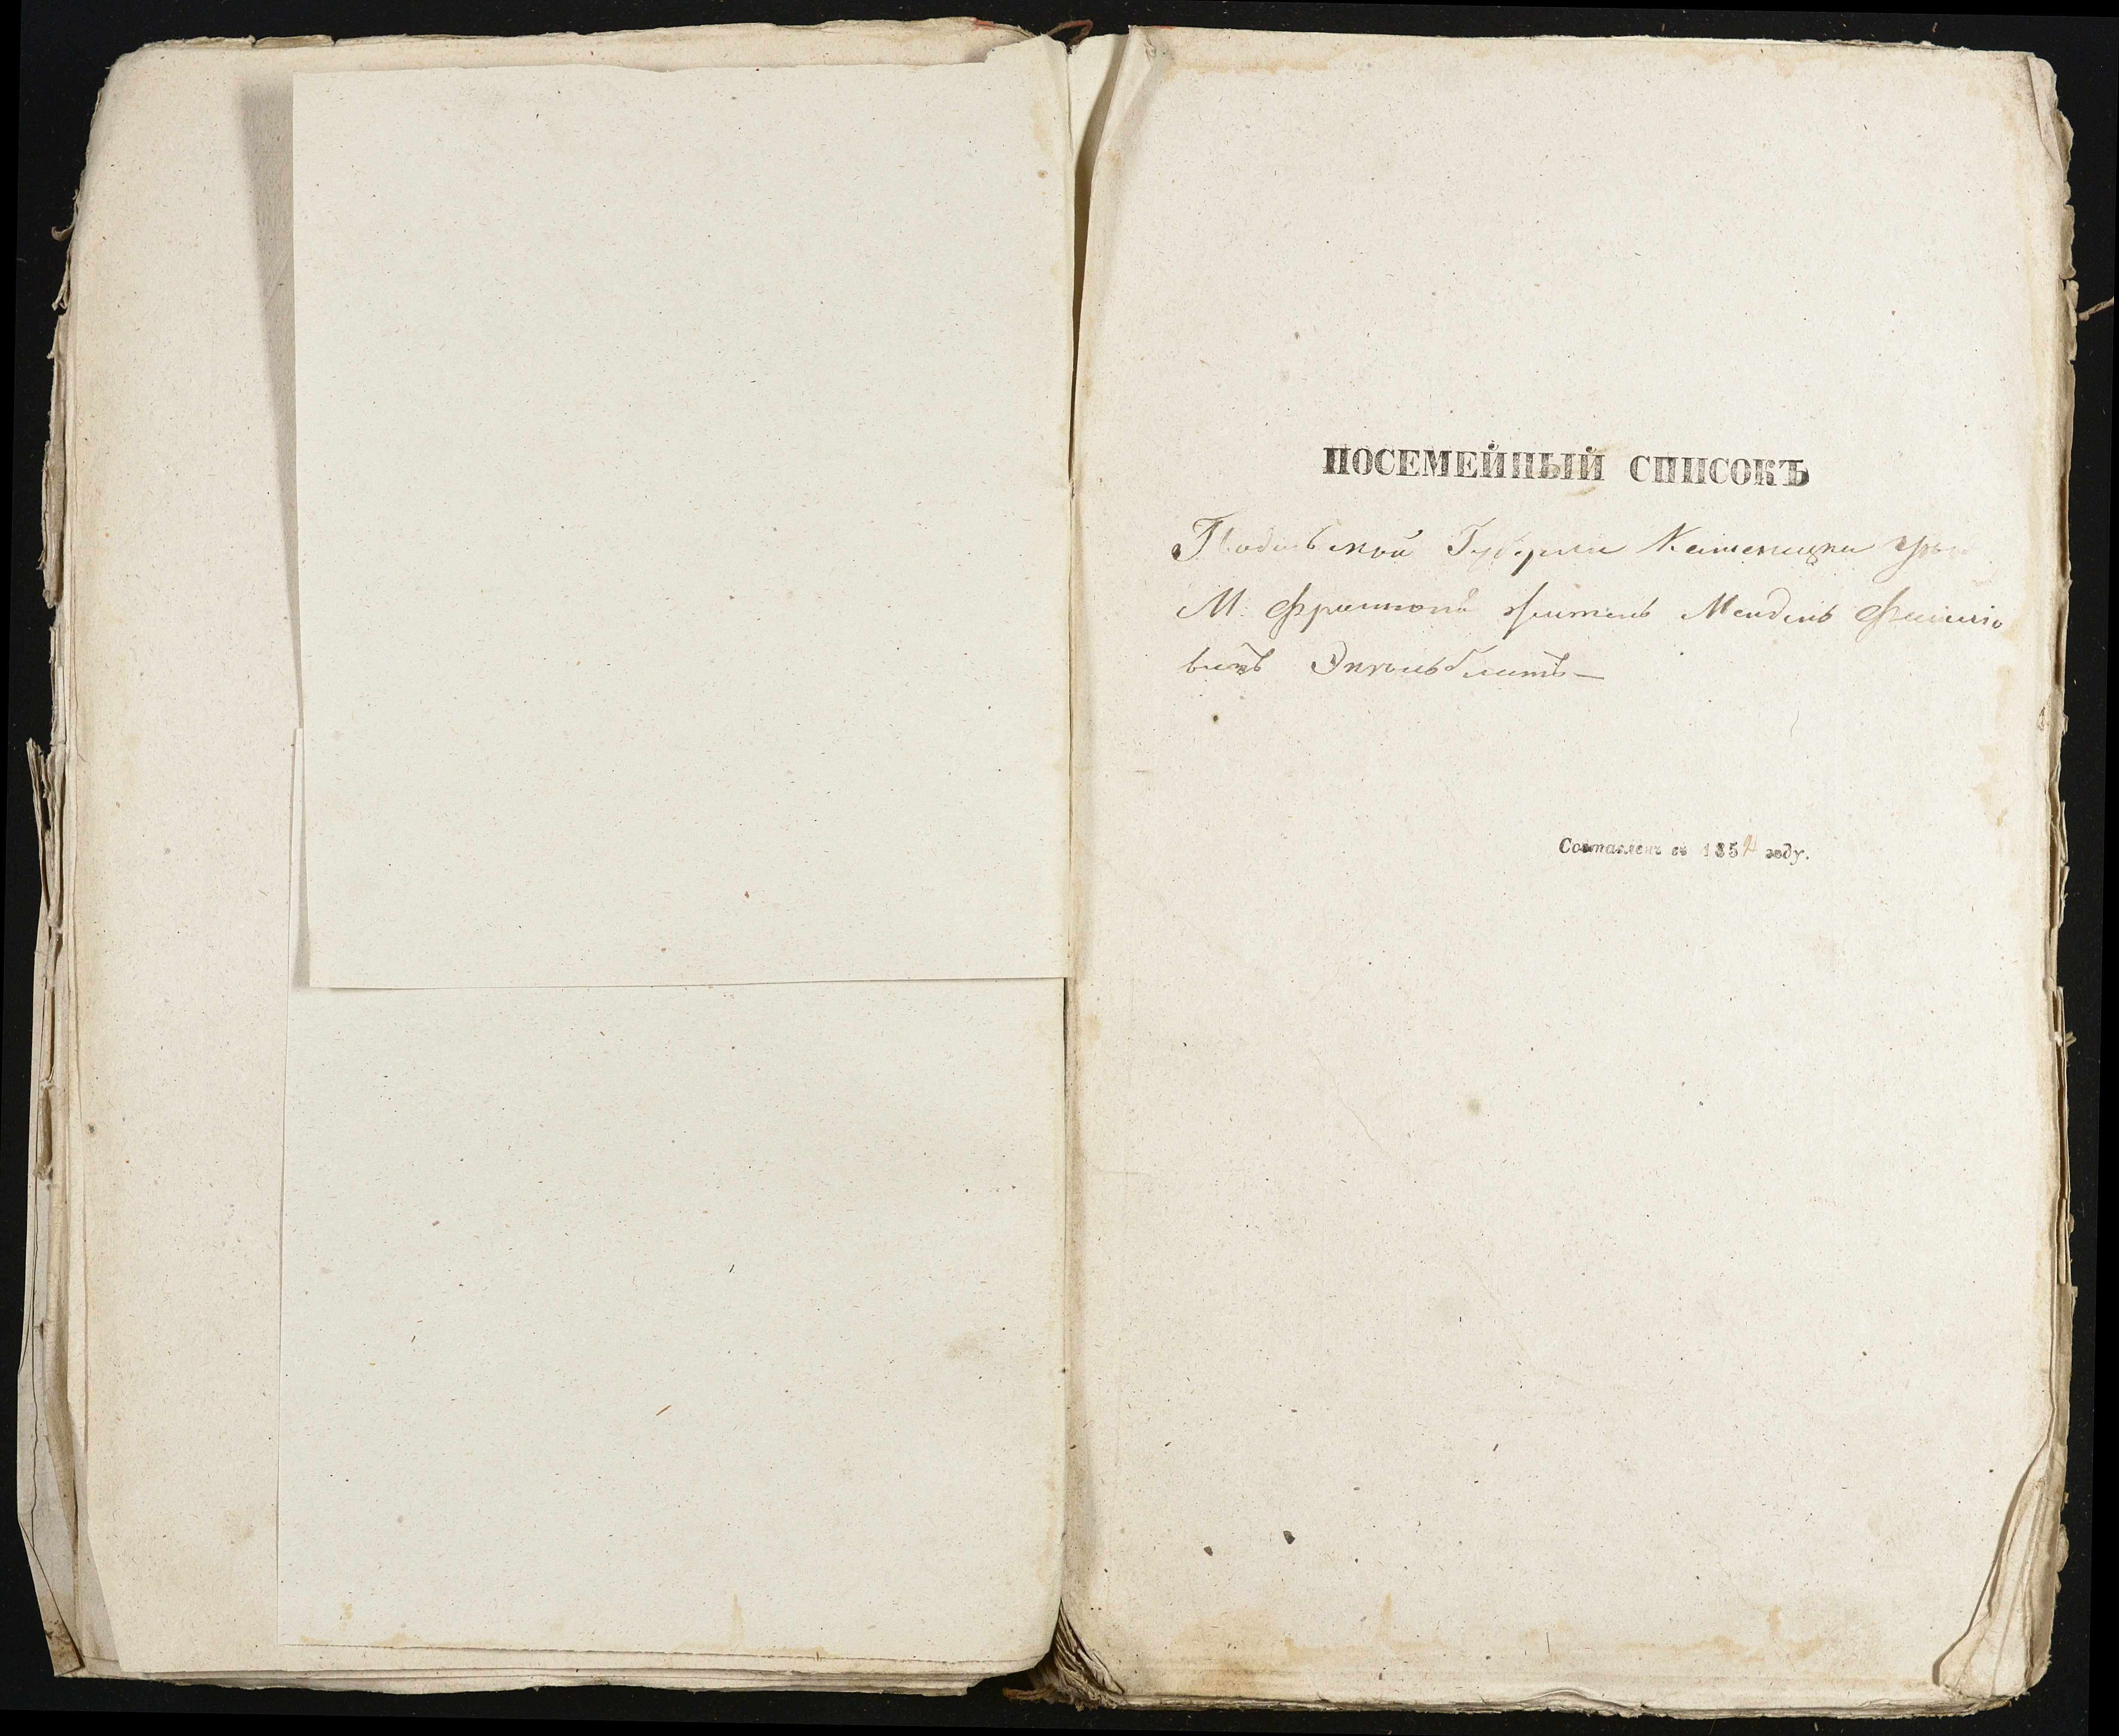 ПОСЕМЕЙНЫЙ СПИСОКЪ
Подольской Губерніи Каменецка
М. Фрампола житель Мендель
вичъ
Составленъ въ 1852 году.